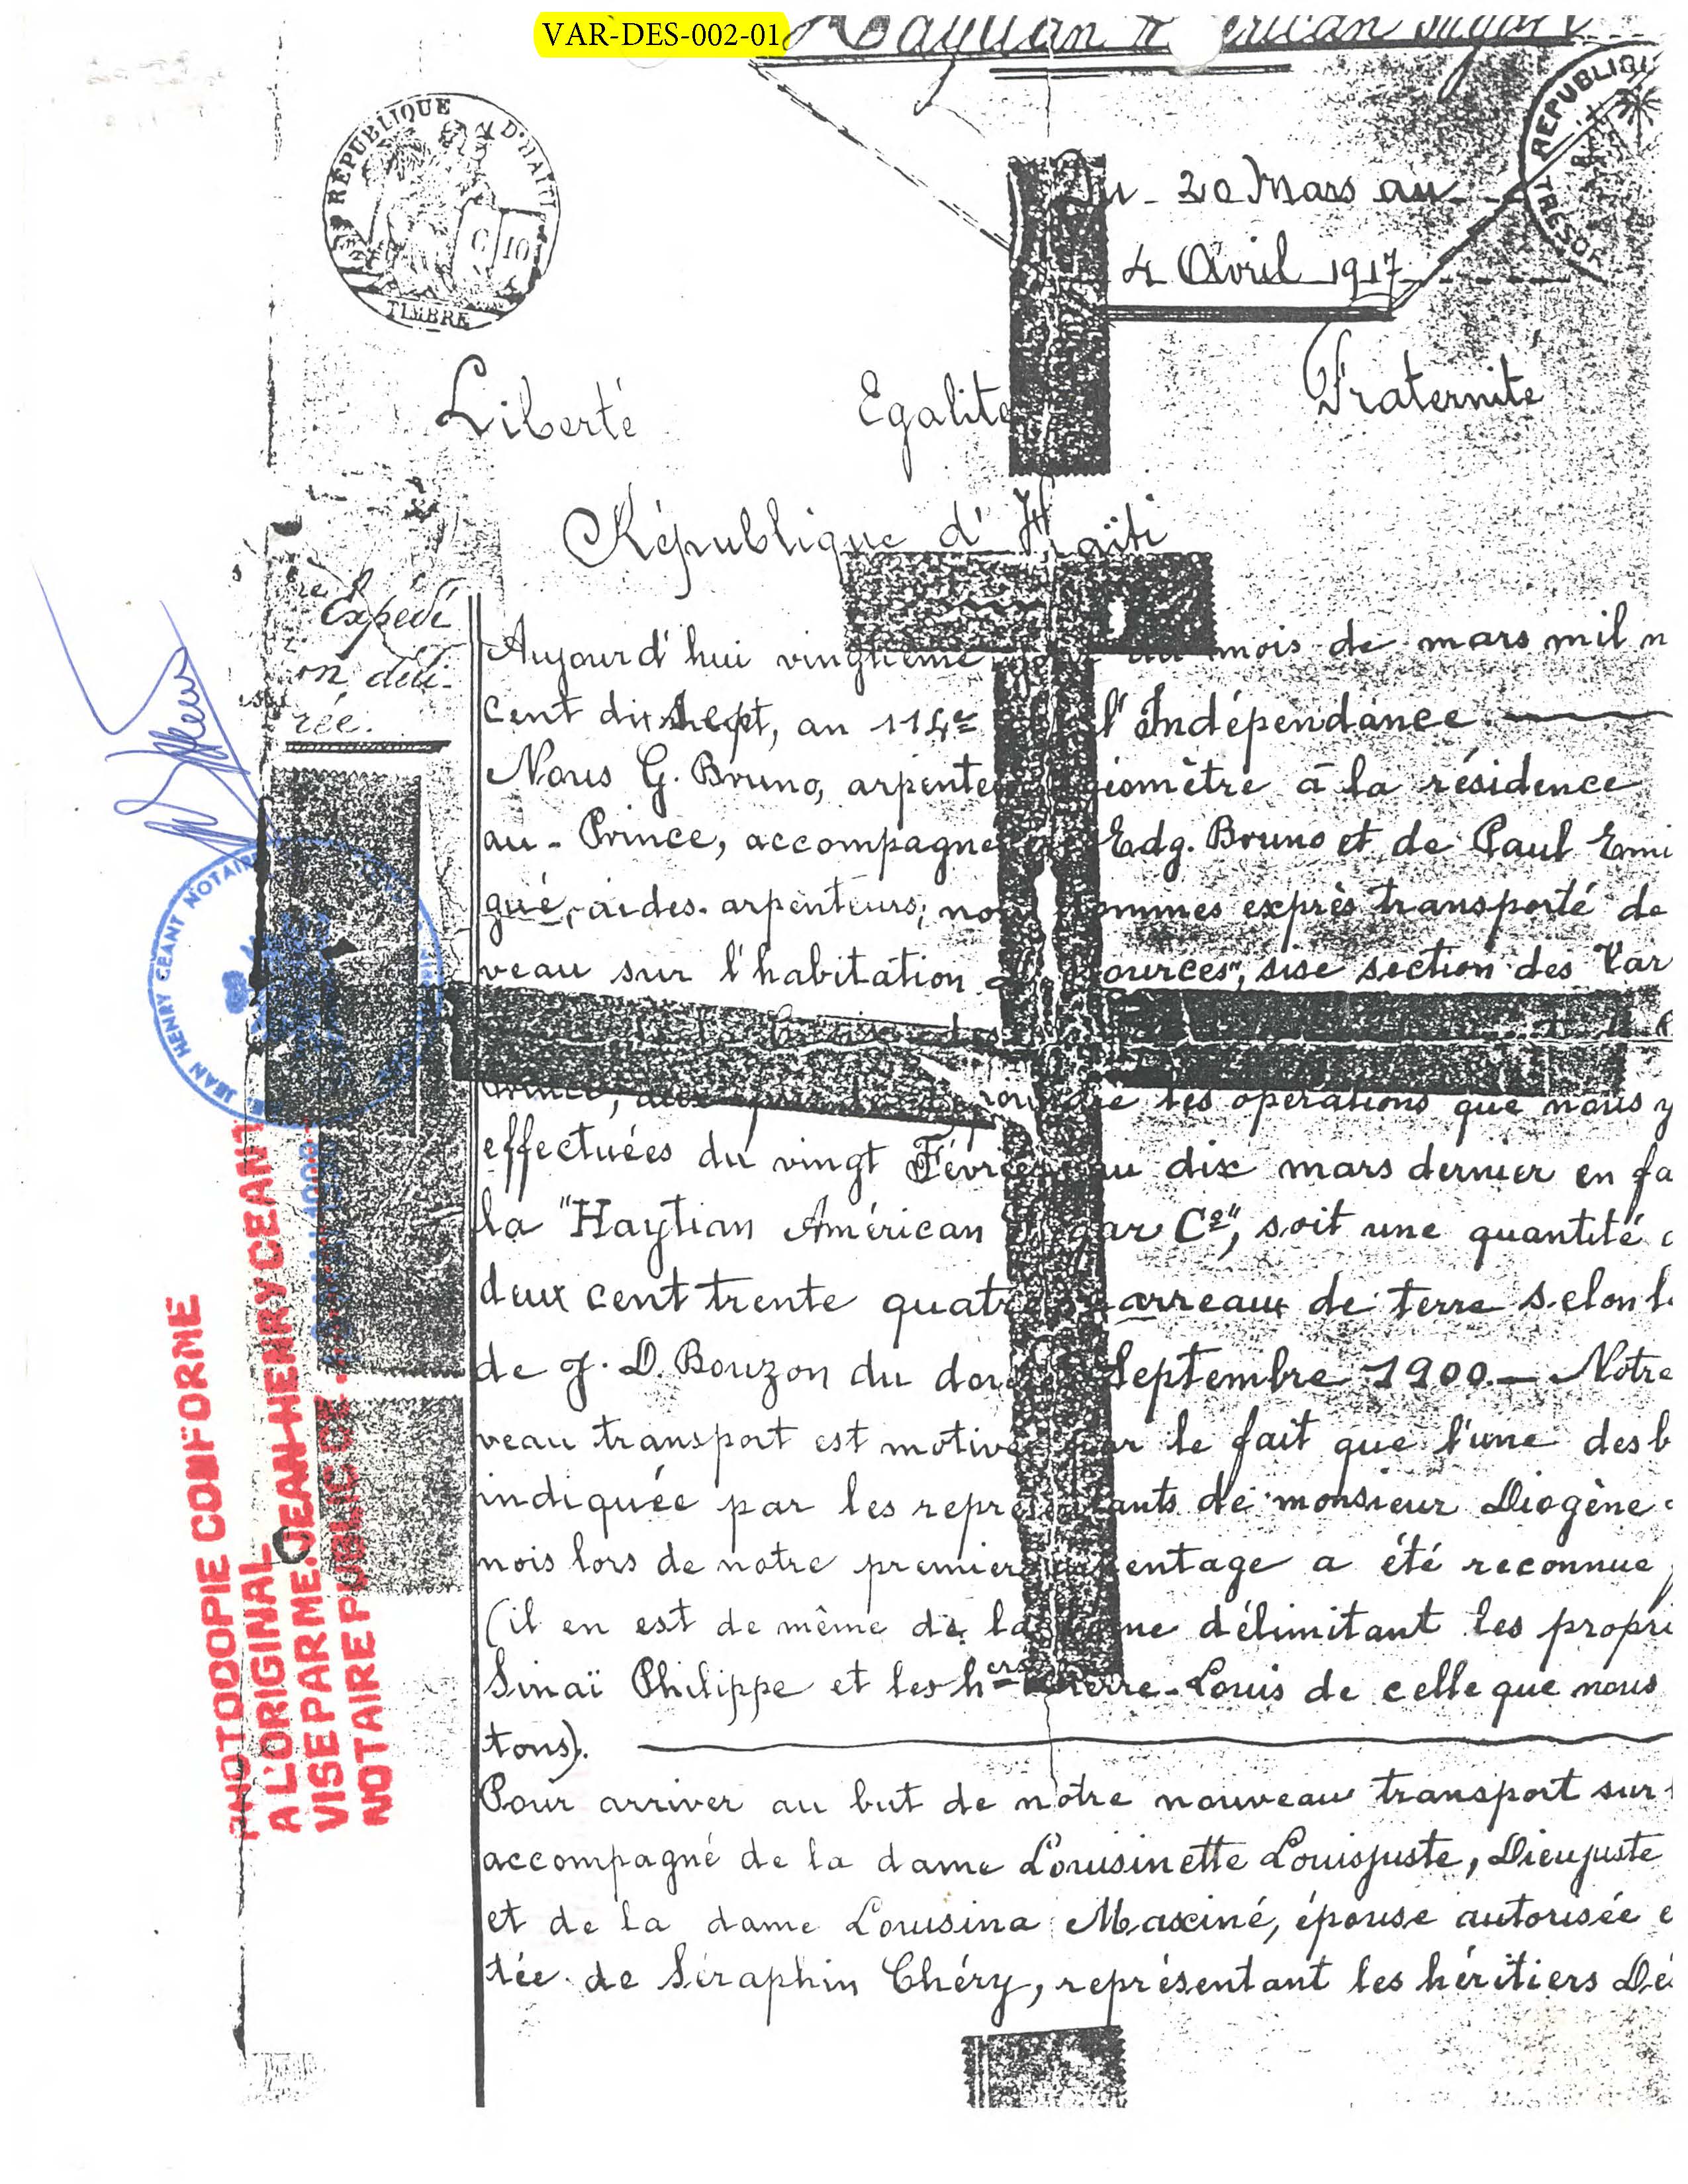 VAR-DES-002-01
Haytian American Sugar
REPUBLIQUE D'HAITI
C 10
TIMBRE
REPUBLIQUE
TRESOR
Du 20 Mars au
4 Avril 1917
Liberté Egalité Fraternité
République d'Haïti
Expédi
on déli-
rée.
Aujourd'hui vingtième du mois de mars mil n
cent dix sept, an 114e l'Indépendance
Nous G. Bruno, arpenteur géomètre à la résidence
au-Prince, accompagné de Edg. Bruno et de Paul Emi
gué, aides-arpenteurs, nous sommes exprès transporté de
veau sur l'habitation Sources", sise section des Var
les opérations que nous y
effectuées du vingt Février au dix mars dernier en fa
la "Haytian Américan Sugar Co", soit une quantité d
deux cent trente quatre carreaux de terre selon l
de J. D. Bouzon du Septembre 1900.— Notre
veau transport est motivé par le fait que l'une des b
indiquée par les représentants de monsieur Diogène
nois lors de notre premier arpentage a été reconnue
(il en est de même de la ligne délimitant les propri
Sinaï Philippe et les hers Pierre-Louis de celle que nous
tons).
Pour arriver au but de notre nouveau transport sur
accompagné de la dame Lousinette Louisjuste, Dieujuste
et de la dame Lousina Maxiné, épouse autorisée e
tée de Séraphin Chéry, représentant les héritiers Dé
JEAN HENRY CEANT NOTAIRE
PHOTOCOPIE CONFORME
A L'ORIGINAL
VISE PAR ME. JEAN HENRY CEANT
NOTAIRE PUBLIC CE